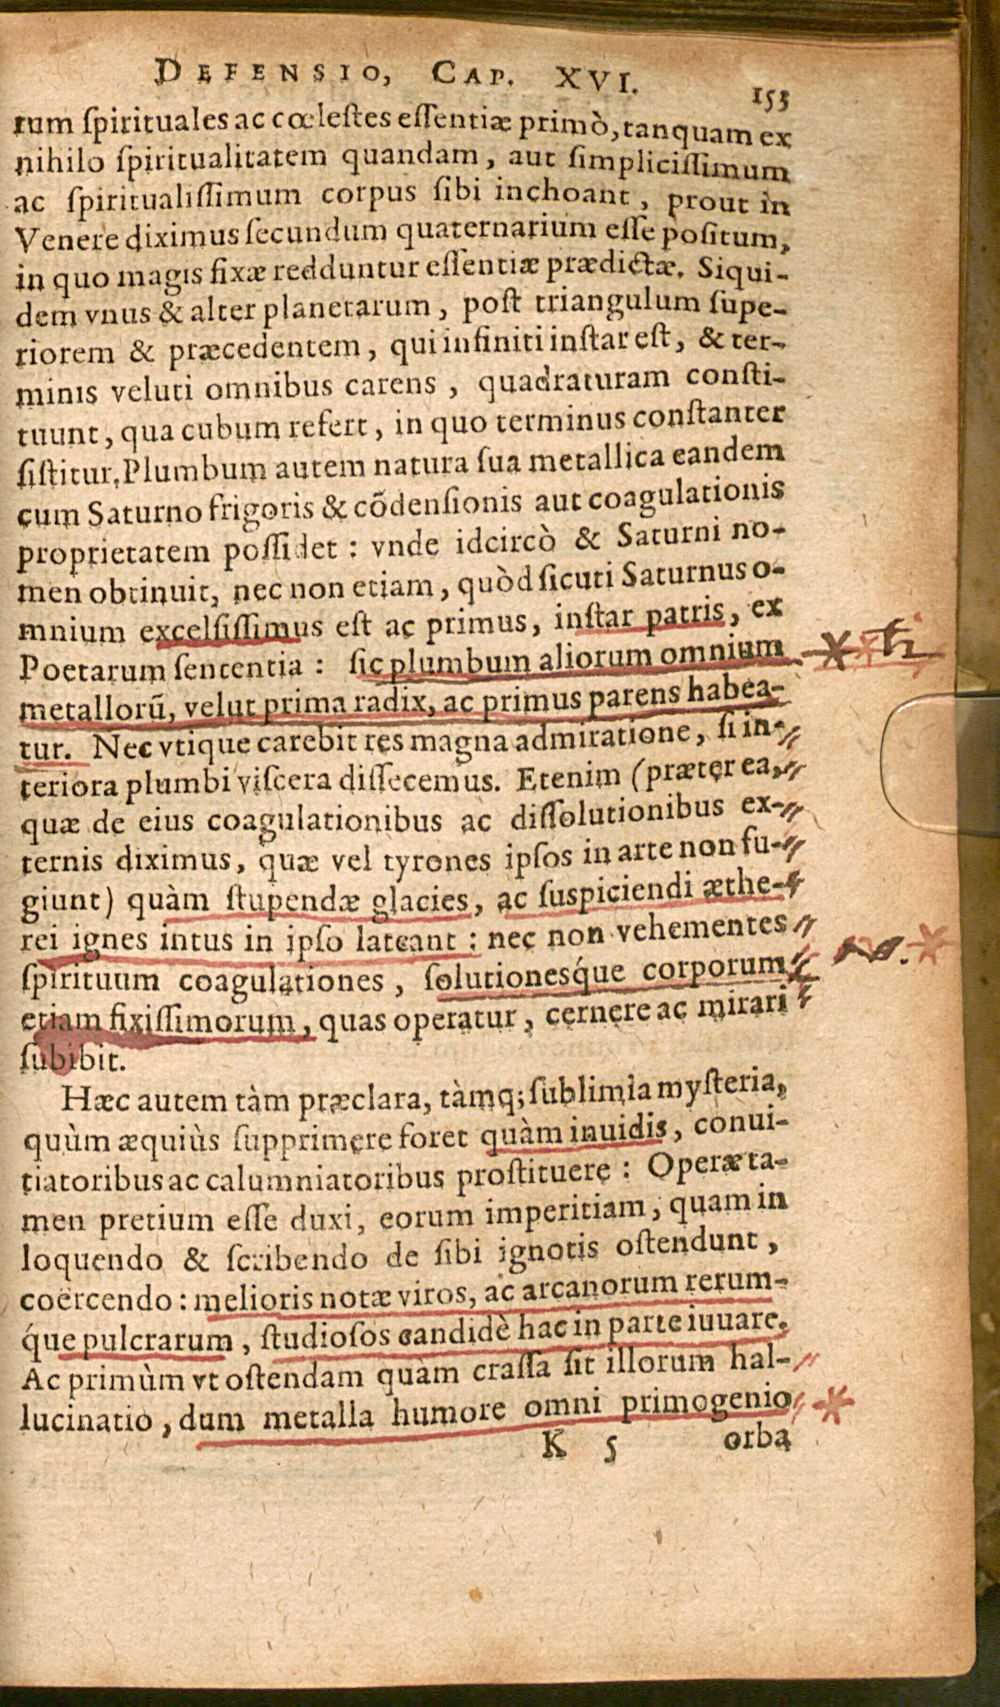 DEFENSIO, CAP. XVI. 153
rum ſpirituales ac cœleſtes eſſentiæ primò, tanquam ex
nihilo ſpiritualitatem quandam, aut ſimpliciſſimum
ac ſpiritualiſſimum corpus ſibi inchoant, prout in
Venere diximus ſecundum quaternarium eſſe poſitum,
in quo magis fixæ redduntur eſſentiæ prædictæ. Siqui-
dem vnus & alter planetarum, poſt triangulum ſupe-
riorem & præcedentem, qui infiniti inſtar eſt, & ter-
minis veluti omnibus carens, quadraturam conſti-
tuunt, qua cubum refert, in quo terminus conſtanter
ſiſtitur. Plumbum autem natura ſua metallica eandem
cum Saturno frigoris & cõdenſionis aut coagulationis
proprietatem poſſidet: vnde idcircò & Saturni no-
men obtinuit, nec non etiam, quòd ſicuti Saturnus o-
mnium excelſiſſimus eſt ac primus, inſtar patris, ex
Poetarum ſententia: ſic plumbum aliorum omnium
metallorũ, velut prima radix, ac primus parens habea-
tur. Nec vtique carebit res magna admiratione, ſi in-
teriora plumbi viſcera diſſecemus. Etenim (præter ea,
quæ de eius coagulationibus ac diſſolutionibus ex-
ternis diximus, quæ vel tyrones ipſos in arte non fu-
giunt) quàm ſtupendæ glacies, ac ſuſpiciendi æthe-
rei ignes intus in ipſo lateant: nec non vehementes
ſpirituum coagulationes, ſolutionesq́ue corporum
etiam fixiſſimorum, quas operatur, cernere ac mirari
ſubibit.
Hæc autem tàm præclara, tàmq; ſublimia myſteria,
quùm æquiùs ſupprimere foret quàm inuidis, conui-
tiatoribus ac calumniatoribus proſtituere: Operæ ta-
men pretium eſſe duxi, eorum imperitiam, quam in
loquendo & ſcribendo de ſibi ignotis oſtendunt,
coërcendo: melioris notæ viros, ac arcanorum rerum-
q́ue pulcrarum, ſtudioſos candidè hac in parte iuuare.
Ac primùm vt oſtendam quàm craſſa ſit illorum hal-
lucinatio, dum metalla humore omni primogenio
K 5 orba